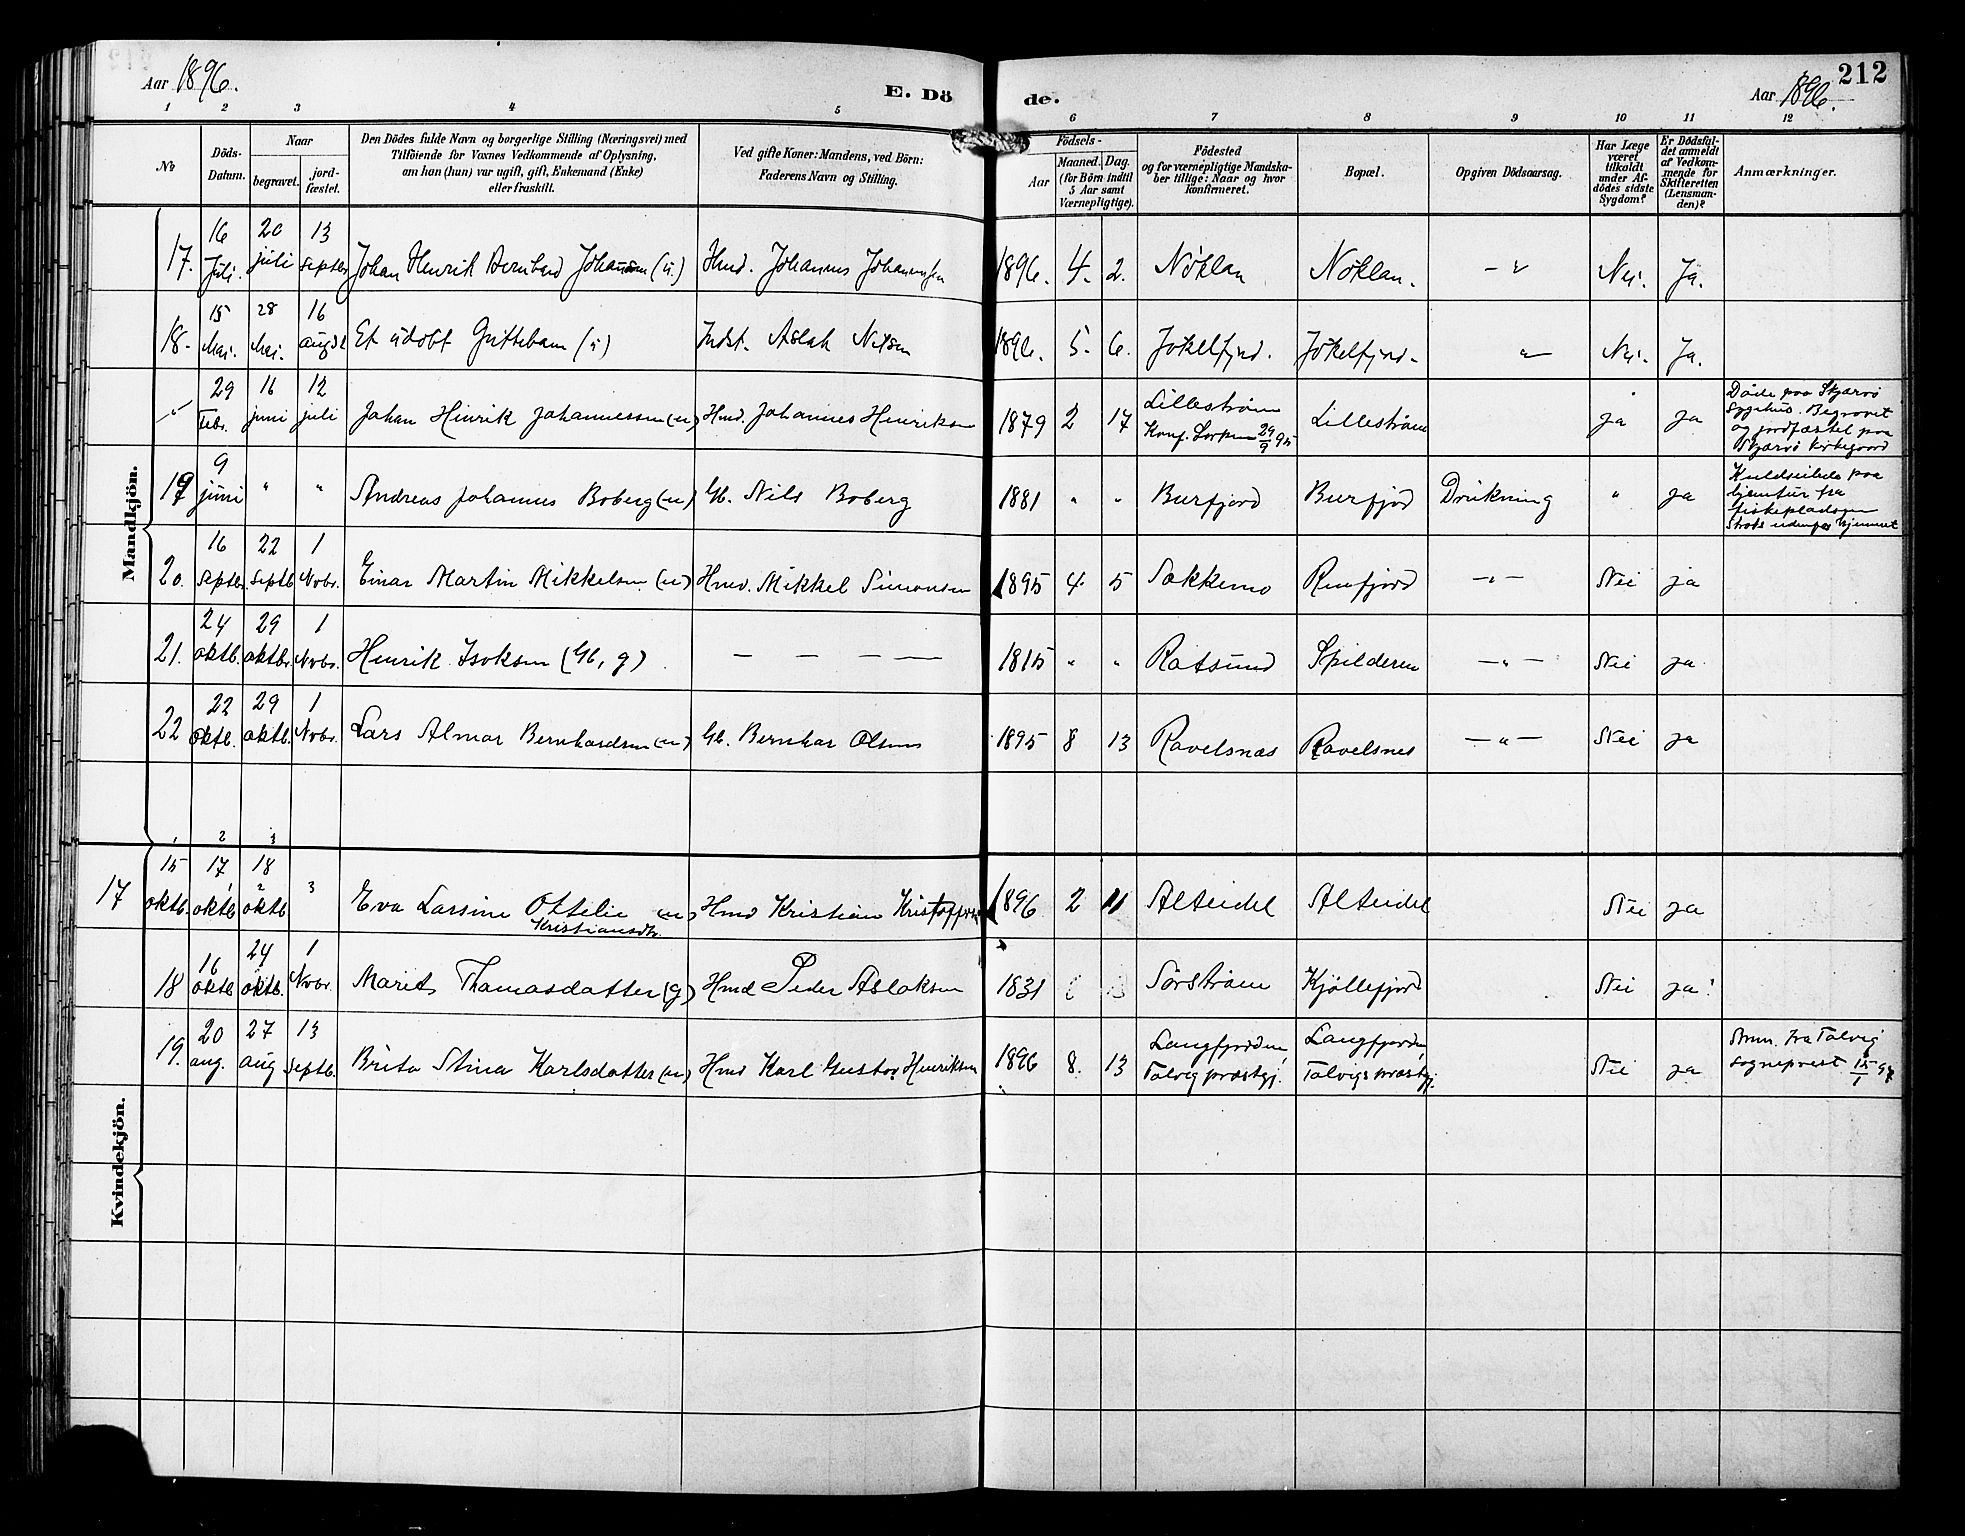 Aar 1896.
E. Dö
de.
Aar 1896.
212
1 2 3 4 5 6 7 8 9 10 11 12
No
Döds-Datum.
Naar
begravet.
jord-fæstet.
Den Dödes fulde Navn og borgerlige Stilling (Næringsvei) med
Tilföiende for Voxnes Vedkommende af Oplysning,
om han (hun) var ugift, gift, Enkemand (Enke)
eller fraskilt.
Ved gifte Koner: Mandens, ved Börn:
Faderens Navn og Stilling.
Födsels-
Aar
Maaned. Dag.
(for Börn indtil
5 Aar samt
Værnepligtige).
Födested
og for værnepligtige Mandska-
ber tillige: Naar og hvor
konfirmeret.
Bopæl.
Opgiven Dödsaarsag.
Har Læge
været
tilkaldt
under Af-
dödes sidste
Sygdom?
Er Dödsfal-
det anmeldt
af Vedkom-
mende for
Skifteretten
(Lensman-
den)?
Anmærkninger.
Mandkjön.
17. 16 Juli. 20 juli 13 septbr Johan Henrik Bernhard Johansen (u) Hmd. Johannes Johannesen 1896. 4. 2. Nöklan Nöklan. — " Nei. Ja.
18. 15 Mai. 28 Mai. 16 augst Et udöbt Guttebarn (u) Indst. Aslak Nilsen 1896. 5. 6. Jökelfjord. Jökelfjord — " Nei. Ja.
" 29 Febr. 16 juni 12 juli Johan Hinrik Johannessen (u) Hmd. Johannes Henriksen 1879 2 17 Lilleström
Konf. 29/9 95 Lilleström ja ja Döde paa Skjærvö
sygehus. Begravet
og jordfæstet paa
Skjærvö kirkegaard
19 9 juni " " Andreas Johannes Boberg (u) Gb. Nils Boberg 1881 " " Burfjord Burfjord Drukning " ja Kuldseilede paa
hjemtur fra
fiskepladsen
strax udenfor hjemmet
20. 16 septbr. 22 septb. 1 Nvbr. Einar Martin Mikkelsen (u) Hmd. Mikkel Simonsen 1895 4. 5 Sokkemo Reinfjord — " — Nei ja
21. 24 oktb. 29 oktbr. 1 Nvbr. Henrik Isaksen (Gb, g) — — — — 1815 " " Rotsund Spilderen — " — Nei ja
22 22 oktb. 29 oktb. 1 Nvbr. Lars Almar Bernhardsen (u) Gb. Bernhar Olsen 1895 8 13 Ravelsnæs Ravelsnes — " — Nei ja
1 2 3
Kvindekjön.
17 15 oktb. 17 oktb 18 oktb Eva Larsine Ottilie (u)
Kristiansdtr. Hmd Kristian Kristoffersen 1896 2 11 Alteidet Alteidet Nei ja
18 16 oktb 24 oktb. 1 Nvbr. Marit Thomasdatter (g) Hmd Peder Aslaksen 1831 Sörström Kjöllefjord Nei ja
19. 20 aug. 27 aug 13 septb. Brita Stina Karlsdatter (u) Hmd Karl Gustav Henriksen 1896 8. 13 Langfjorden,
Talvig præstgj. Langfjorden,
Talvigs præstgj. Nei ja Anm. fra Talvig
sogneprest 15/1 97